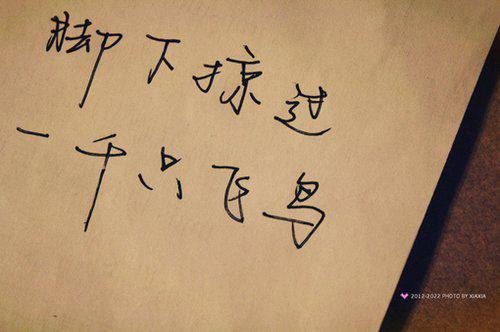 脚下掠过
一千只飞鸟
2012-2022 PHOTO BY XIAXIA